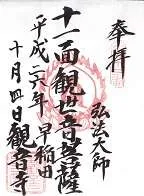 奉拝
弘法大師
十一面観世音菩薩
早稲田
平成二六年
十月四日観音寺